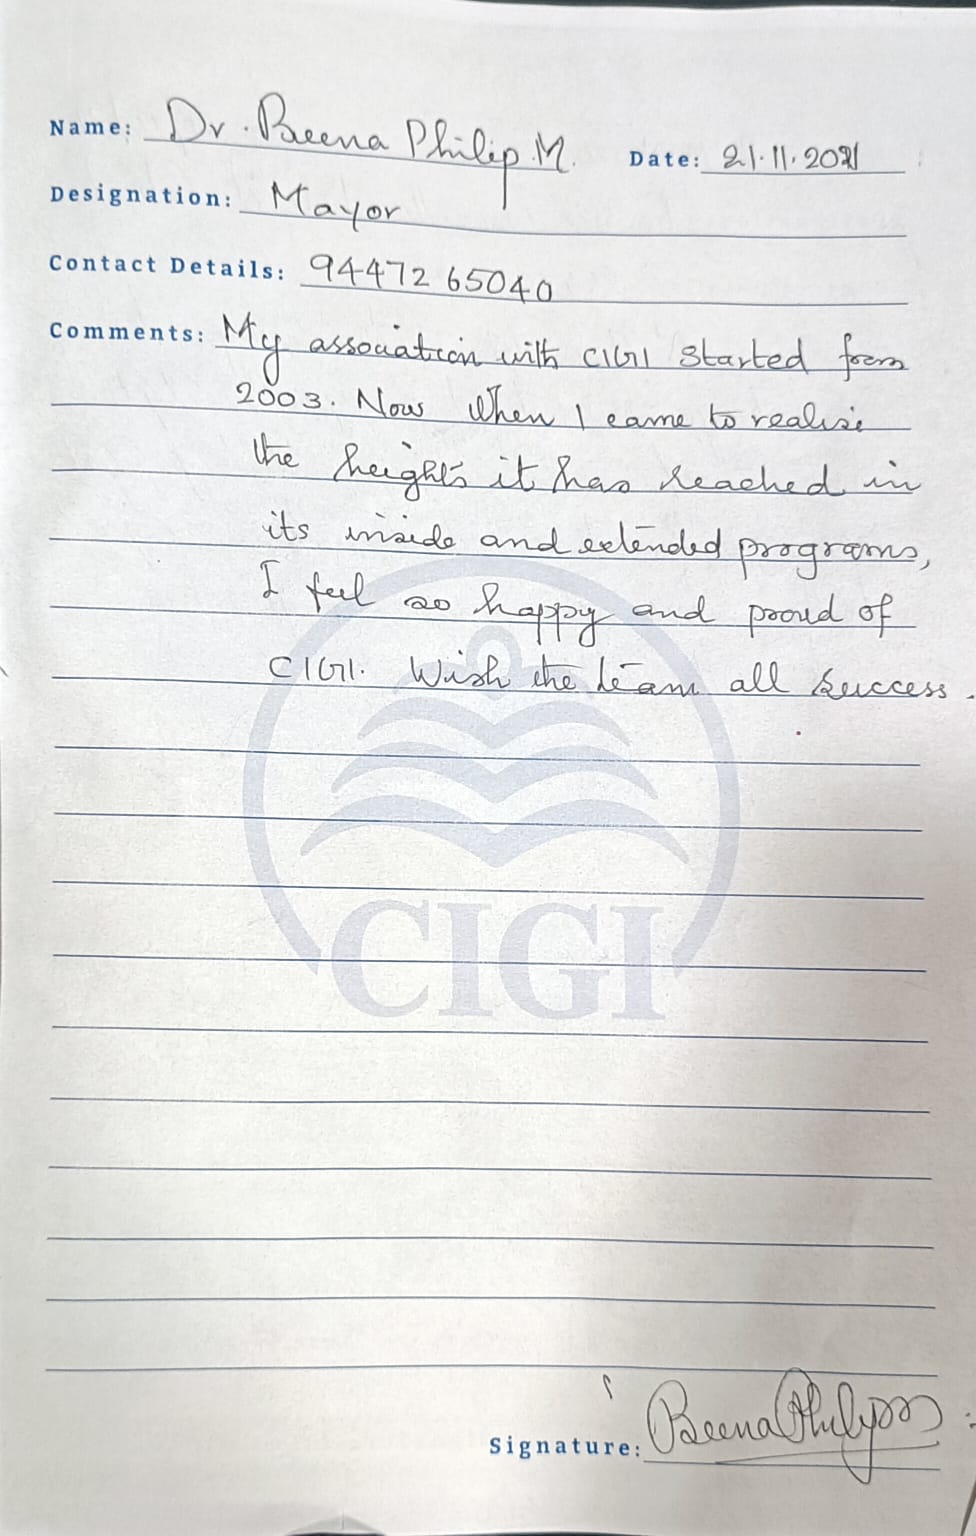 Name: Dr. Beena Philip.M. Date: 21.11.2021
Designation: Mayor
Contact Details: 94472 65040
Comments: My association with CIGI started from
2003. Now when I came to realise
the heights it has reached in
its inside and extended programs,
I feel so happy and proud of
CIGI. Wish the team all success.
CIGI
Signature: Beena Philip